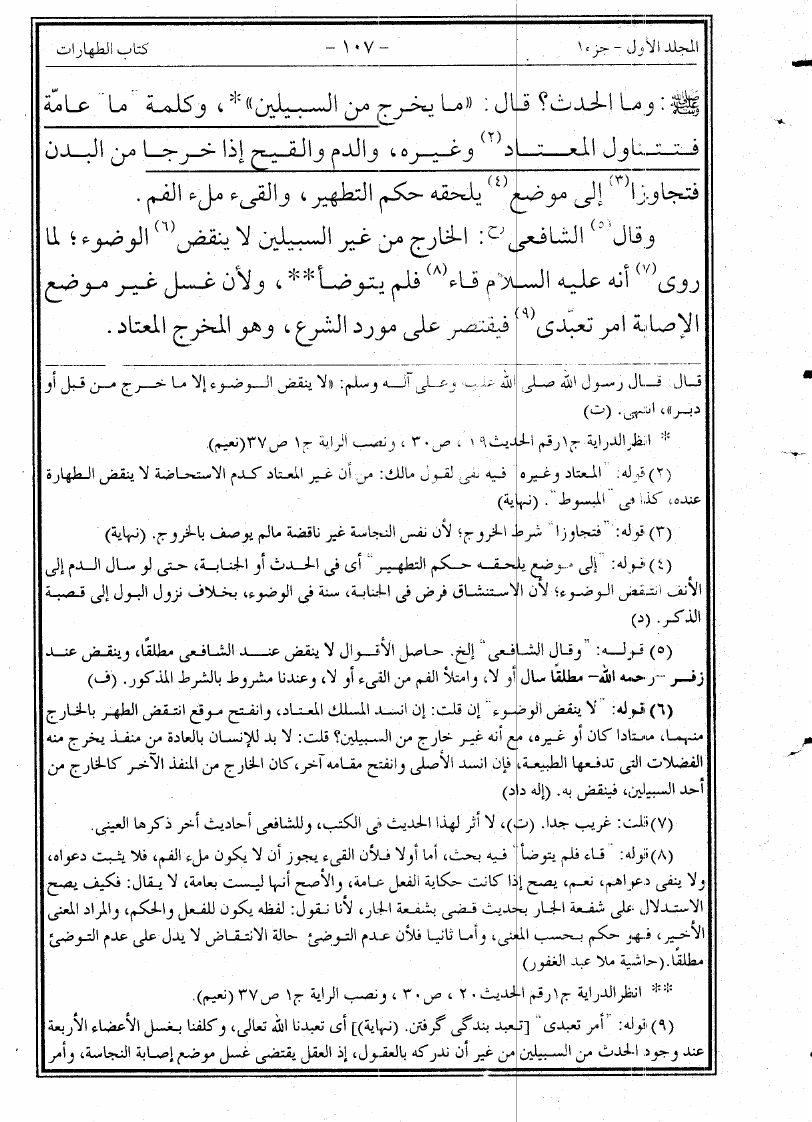 المجلد الأول - جزء١ - ١٠٧ - كتاب الطهارات
ﷺ: وما الحدث؟ قال: «ما يخرج من السبيلين»*، وكلمة "ما" عامّة
فتتناول المعتاد(٢) وغيره، والدم والقيح إذا خرجا من البدن
فتجاوزا(٣) إلى موضع(٤) يلحقه حكم التطهير، والقىء ملء الفم.
وقال(٥) الشافعى رح: الخارج من غير السبيلين لا ينقض(٦) الوضوء؛ لما
روى(٧) أنه عليه السلام قاء(٨) فلم يتوضأ**، ولأن غسل غير موضع
الإصابة امر تعبّدى(٩) فيقتصر على مورد الشرع، وهو المخرج المعتاد.
قال قال رسول الله صلى الله عليه وعلى آله وسلم: «لا ينقض الوضوء إلا ما خرج من قبل أو
دبر»، انتهى. (ت)
* انظر الدراية ج١ رقم الحديث١٩، ص٣٠، ونصب الراية ج١ ص٣٧ (نعيم).
(٢) قوله: "المعتاد وغيره" فيه نفى لقول مالك: من أن غير المعتاد كدم الاستحاضة لا ينقض الطهارة
عنده، كذا فى "المبسوط". (نهاية)
(٣) قوله: "فتجاوزا" شرط الخروج؛ لأن نفس النجاسة غير ناقضة مالم يوصف بالخروج. (نهاية)
(٤) قوله: "إلى موضع يلحقه حكم التطهير" أى فى الحدث أو الجنابة، حتى لو سال الدم إلى
الأنف انتقض الوضوء؛ لأن الاستنشاق فرض فى الجنابة، سنة فى الوضوء، بخلاف نزول البول إلى قصبة
الذكر. (د)
(٥) قوله: "وقال الشافعى" إلخ. حاصل الأقوال لا ينقض عند الشافعى مطلقًا، وينقض عند
زفر -رحمه الله- مطلقًا سال أو لا، وامتلأ الفم من القىء أو لا، وعندنا مشروط بالشرط المذكور. (ف)
(٦) قوله: "لا ينقض الوضوء" إن قلت: إن انسد المسلك المعتاد، وانفتح موقع انتقض الطهر بالخارج
منهما، معتادا كان أو غيره، مع أنه غير خارج من السبيلين؟ قلت: لا بد للإنسان بالعادة من منفذ يخرج منه
الفضلات التى تدفعها الطبيعة، فإن انسد الأصلى وانفتح مقامه آخر، كان الخارج من المنفذ الآخر كالخارج من
أحد السبيلين، فينقض به. (إله داد)
(٧) قلت: غريب جدا. (ت)، لا أثر لهذا الحديث فى الكتب، وللشافعى أحاديث أخر ذكرها العينى.
(٨) قوله: "قاء فلم يتوضأ" فيه بحث، أما أولا فلأن القىء يجوز أن لا يكون ملء الفم، فلا يثبت دعواه،
ولا ينفى دعواهم، نعم، يصح إذا كانت حكاية الفعل عامة، والأصح أنها ليست بعامة، لا يقال: فكيف يصح
الاستدلال على شفعة الجار بحديث قضى بشفعة الجار، لأنا نقول: لفظه يكون للفعل والحكم، والمراد المعنى
الأخير، فهو حكم بحسب المعنى، وأما ثانيا فلأن عدم التوضئ حالة الانتقاض لا يدل على عدم التوضئ
مطلقًا. (حاشية ملا عبد الغفور)
** انظر الدراية ج١ رقم الحديث٢٠، ص٣٠، ونصب الراية ج١ ص٣٧ (نعيم).
(٩) قوله: "أمر تعبدى" [تعبد بندگى گرفتن. (نهاية)] أى تعبدنا الله تعالى، وكلفنا بغسل الأعضاء الأربعة
عند وجود الحدث من السبيلين من غير أن ندركه بالعقول، إذ العقل يقتضى غسل موضع إصابة النجاسة، وأمر